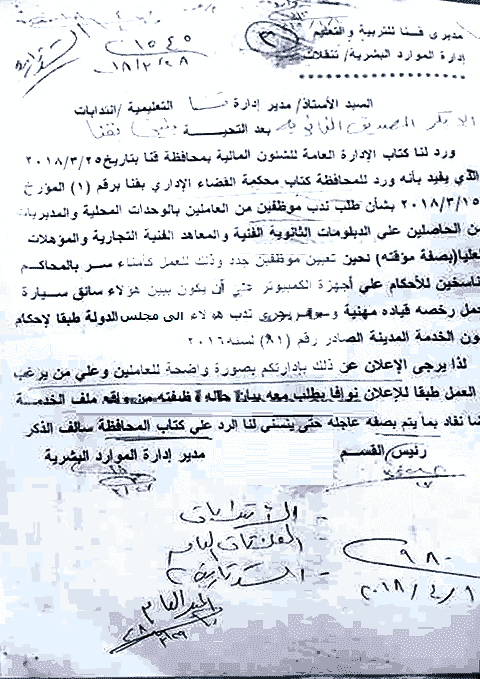 مديرى قنا للتربية والتعليم
إدارة الموارد البشرية/ تنقلات
١٥٤٥
٢٠١٨/٣/٢٨
السيد الأستاذ/ مدير إدارة قنا التعليمية /انتدابات
بعد التحية
ورد لنا كتاب الإدارة العامة للشئون المالية بمحافظة قنا بتاريخ ٢٠١٨/٣/٢٥
الذي يفيد بأنه ورد للمحافظة كتاب محكمة القضاء الإداري بقنا برقم (١) المؤرخ
٢٠١٨/٣/١٥ بشأن طلب ندب موظفين من العاملين بالوحدات المحلية والمديريات
من الحاصلين علي الدبلومات الثانوية الفنية والمعاهد الفنية التجارية والمؤهلات
العليا(بصفة مؤقته) لحين تعيين موظفين جدد وذلك للعمل كأمناء سر بالمحاكم
ناسخين للأحكام علي أجهزة الكمبيوتر علي أن يكون ببين هؤلاء سائق سيارة
حمل رخصه قياده مهنية وسوف يجرى ندب هؤلاء الى مجلس الدولة طبقا لإحكام
ون الخدمة المدينة الصادر رقم (٨١) لسنه ٢٠١٦
لذا يرجى الإعلان عن ذلك بإدارتكم بصورة واضحة للعاملين وعلي من يرغب
العمل طبقا للإعلان نوافا بطلب معه بيان حاله وظيفته من واقع ملف الخدمة
نفاد بما يتم بصفه عاجله حتى يتسني لنا الرد علي كتاب المحافظة سالف الذكر
رئيس القسم
مدير إدارة الموارد البشرية
- الانتدابات
٩٨٠
٢٠١٨/٤/١
المدير العام